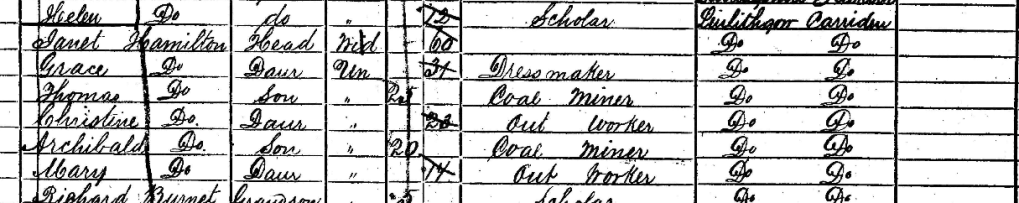 Helen Do do " 12 Scholar Linlithgow Carriden
Janet Hamilton Head Wid 60 Do Do
Grace Do Daur Un 31 Dressmaker Do Do
Thomas Do Son " 25 Coal Miner Do Do
Christine Do. Daur " 23 Out Worker Do Do
Archibald Do. Son " 20 Coal Miner Do Do
Mary Do Daur " 14 Out Worker Do Do
Richard Burnet Grandson " Scholar Do Do